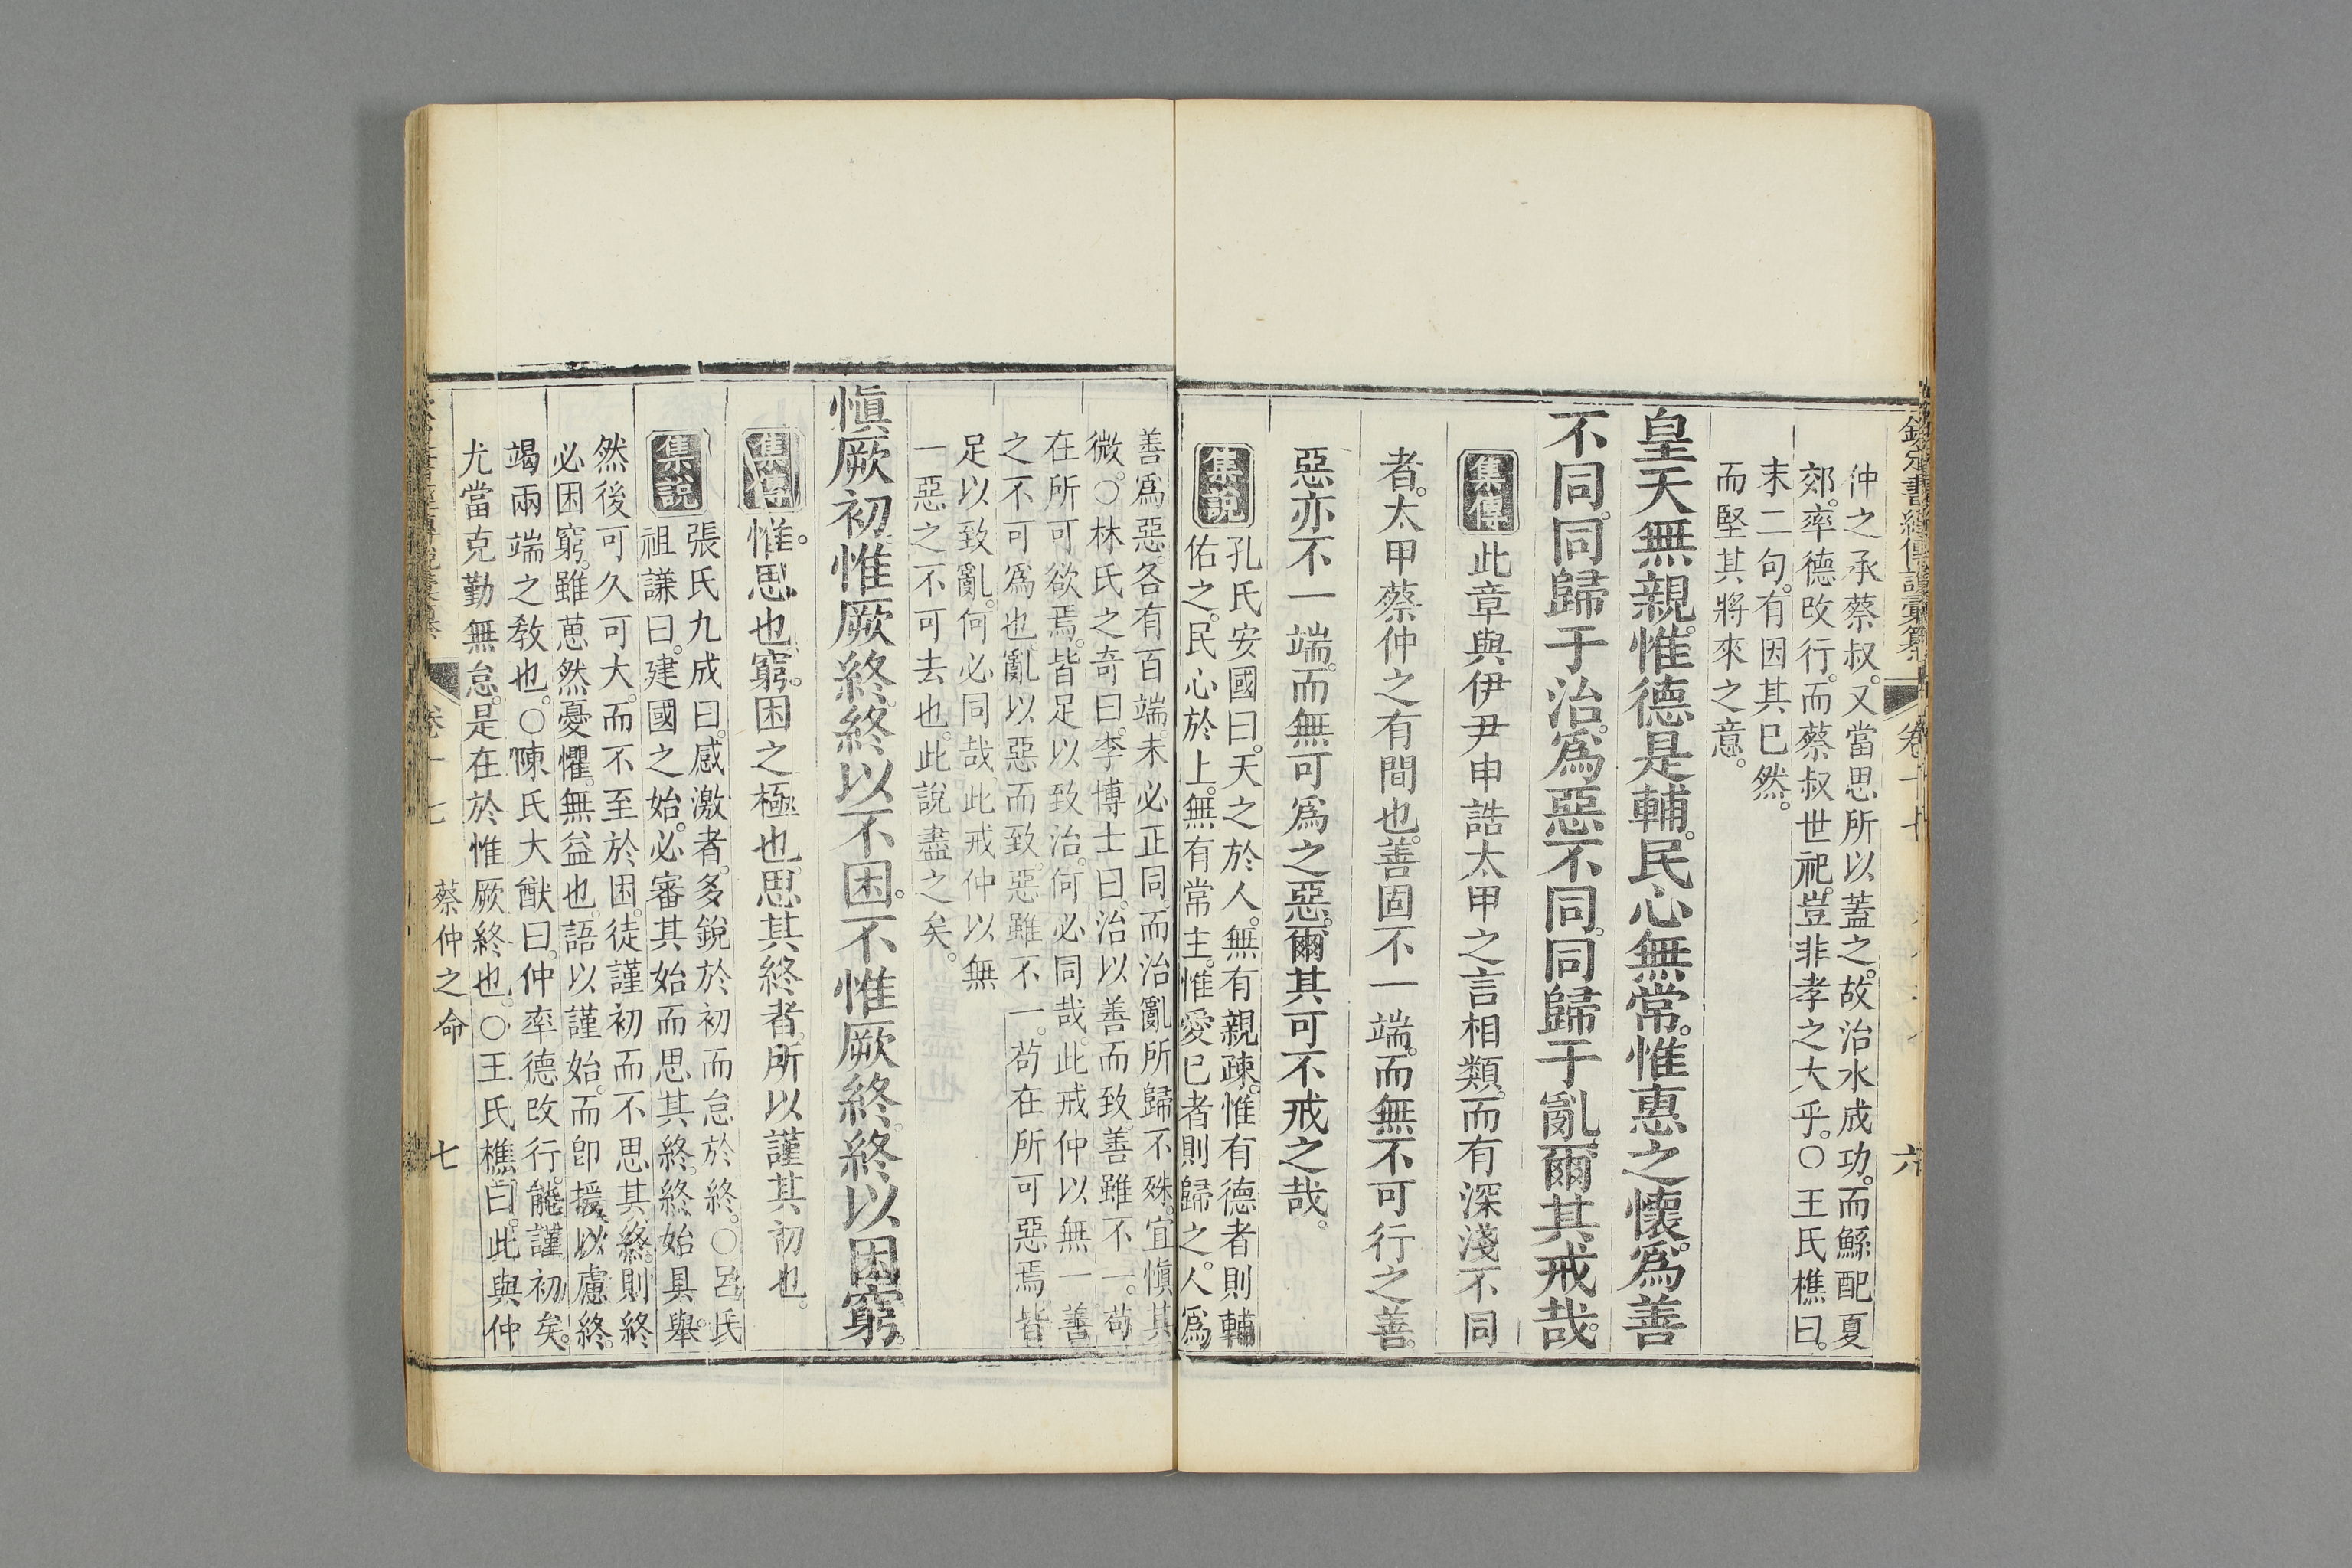 欽定書經傳說彙纂 卷十七 六
仲之承蔡叔。又當思所以蓋之。故治水成功。而鯀配夏
郊。率德改行。而蔡叔世祀。豈非孝之大乎。○王氏樵曰。
末二句。有因其已然。
而堅其將來之意。
皇天無親。惟德是輔。民心無常。惟惠之懷。爲善
不同。同歸于治。爲惡不同。同歸于亂。爾其戒哉。
集傳 此章與伊尹申誥太甲之言相類。而有深淺不同
者。太甲蔡仲之有間也。善固不一端。而無不可行之善。
惡亦不一端。而無可爲之惡。爾其可不戒之哉。
集說 孔氏安國曰。天之於人。無有親疎。惟有德者則輔
佑之。民心於上。無有常主。惟愛已者則歸之。人爲
善爲惡。各有百端。未必正同。而治亂所歸不殊。宜愼其
微。○林氏之奇曰。李博士曰。治以善而致。善雖不一。苟
在所可欲焉。皆足以致治。何必同哉。此戒仲以無一善
之不可爲也。亂以惡而致。惡雖不一。苟在所可惡焉。皆
足以致亂。何必同哉。此戒仲以無
一惡之不可去也。此說盡之矣。
愼厥初。惟厥終。終以不困。不惟厥終。終以困窮。
集傳 惟。思也。窮。困之極也。思其終者。所以謹其初也。
集說 張氏九成曰。感激者。多銳於初而怠於終。○呂氏
祖謙曰。建國之始。必審其始而思其終。終始具舉。
然後可久可大。而不至於困。徒謹初而不思其終。則終
必困窮。雖葸然憂懼。無益也。語以謹始。而卽援以慮終。
竭兩端之敎也。○陳氏大猷曰。仲率德改行。能謹初矣。
尤當克勤無怠。是在於惟厥終也。○王氏樵曰。此與仲
卷十七 蔡仲之命 七